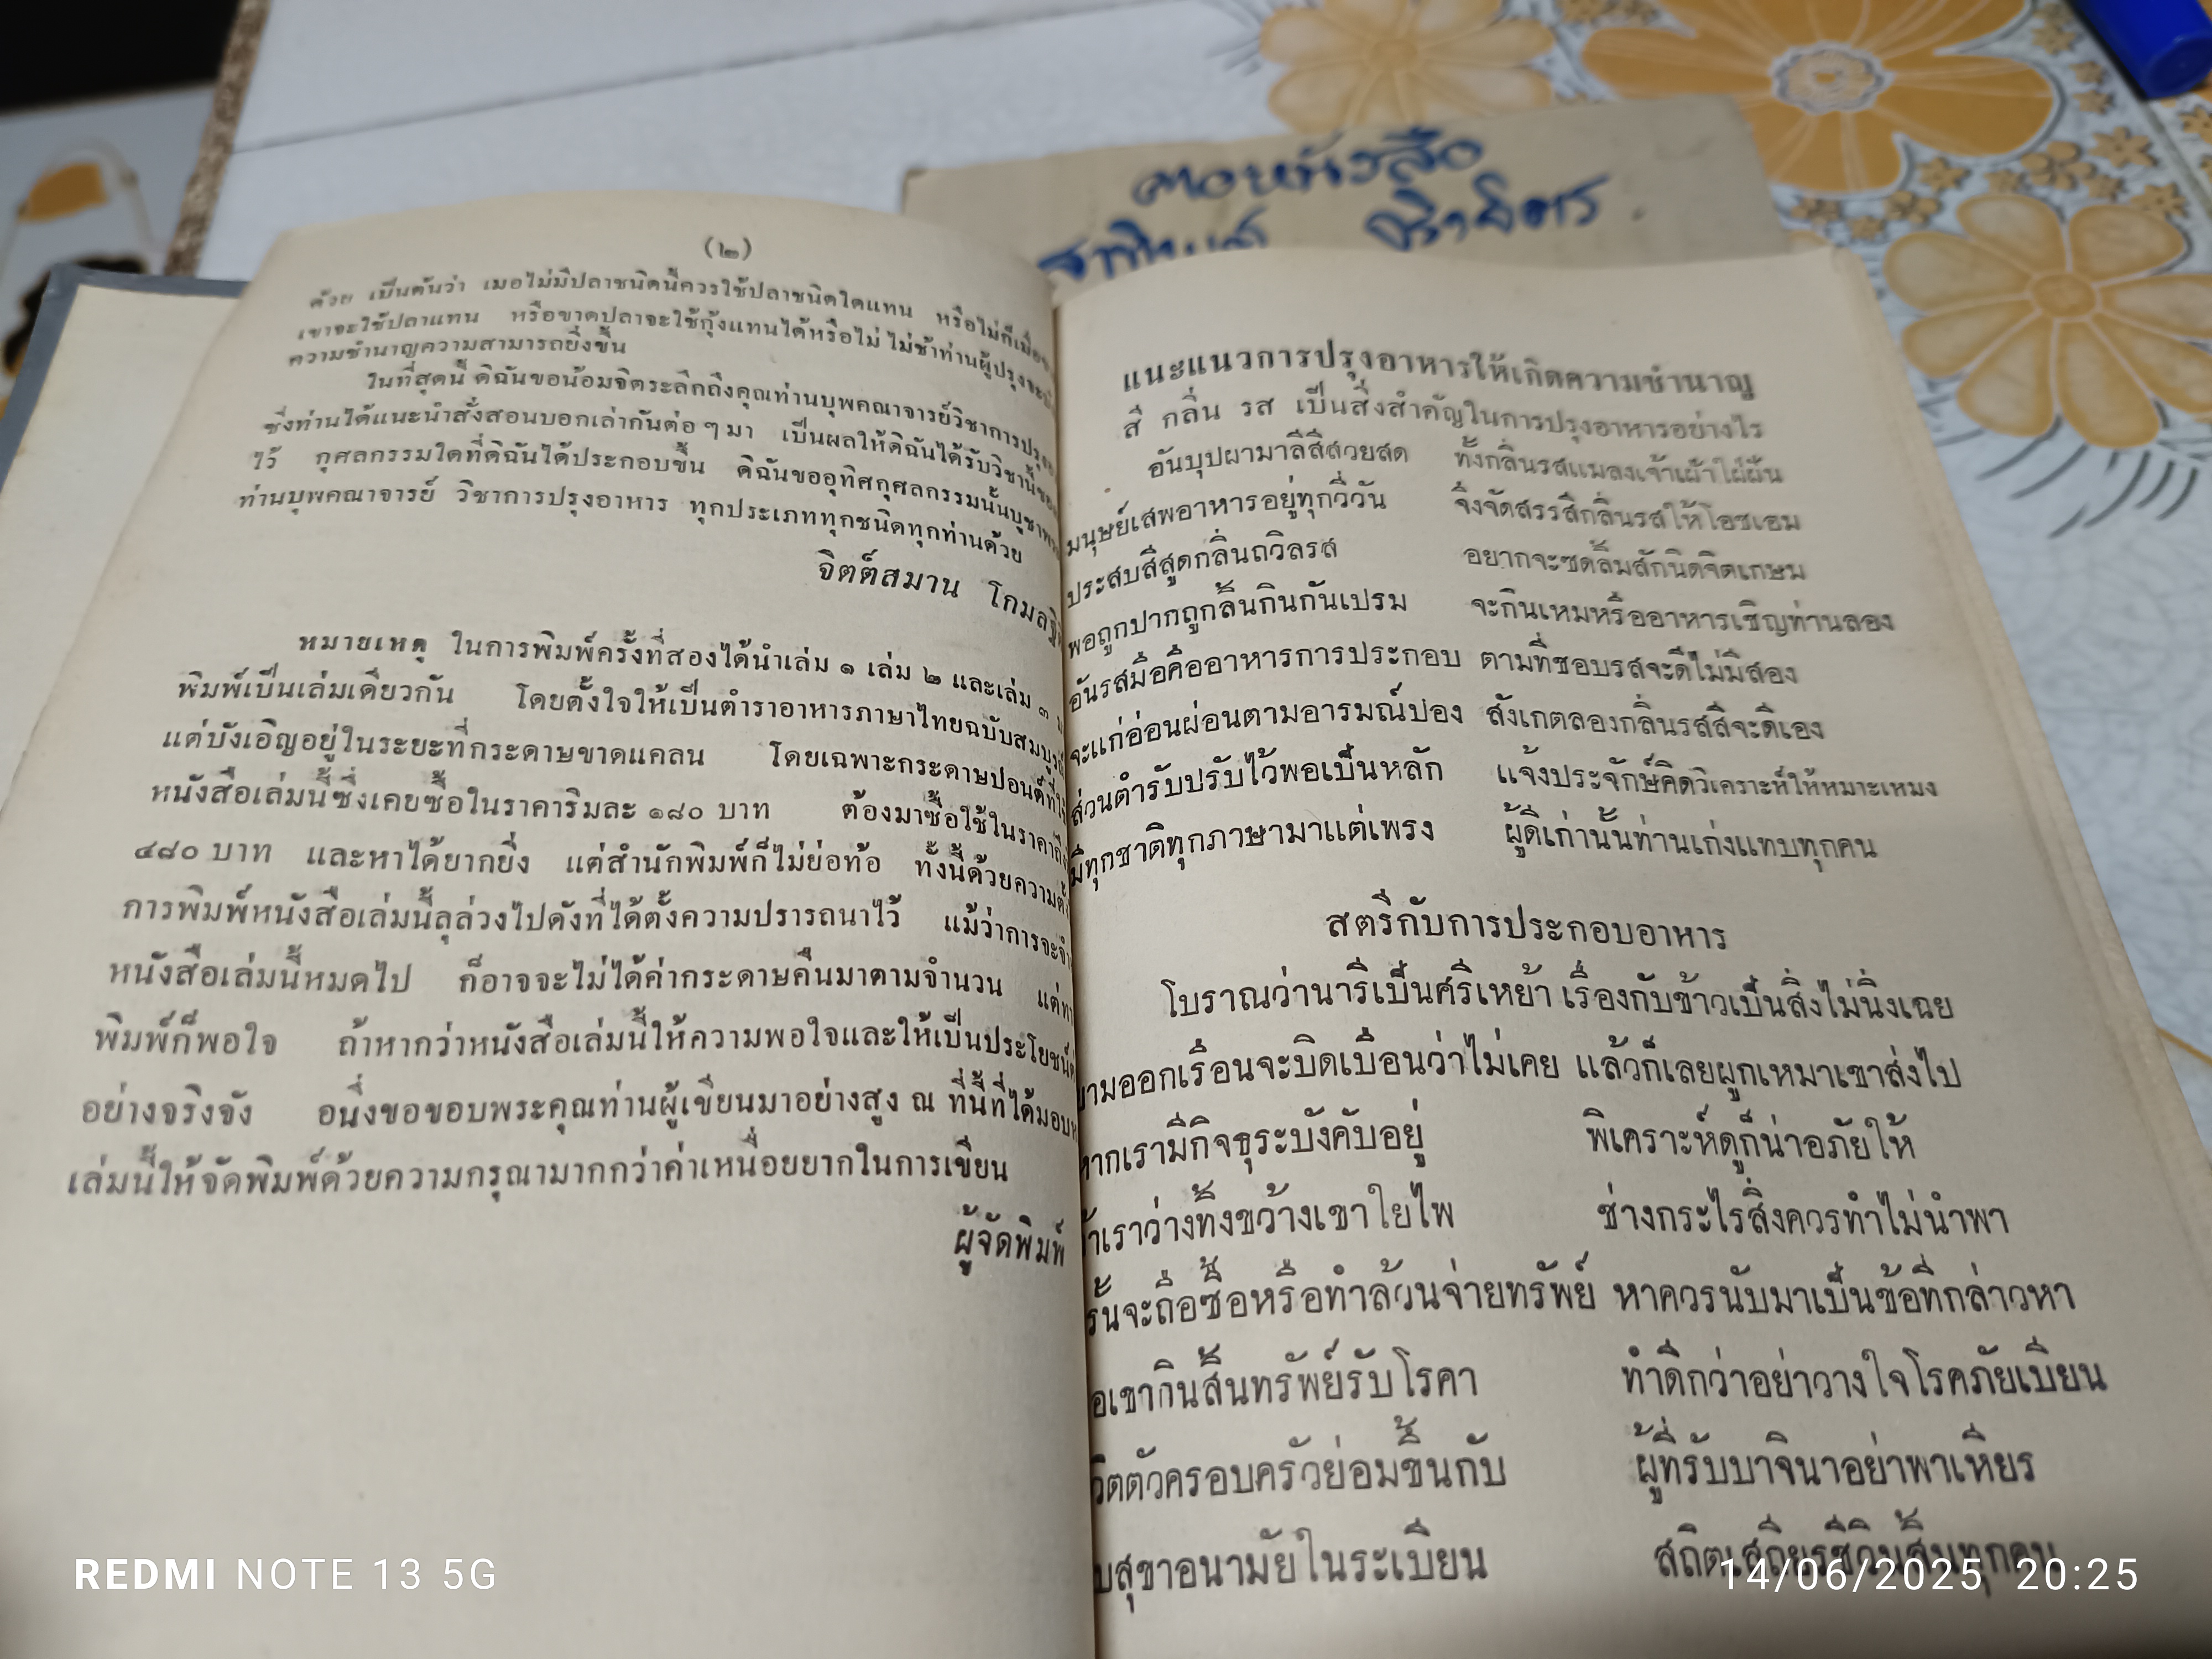 ตอหนังสือ
(๒)
ด้วย เป็นต้นว่า เมื่อไม่มีปลาชนิดนี้ควรใช้ปลาชนิดใดแทน หรือไม่ก็เมื่อ
เขาจะใช้ปลาแทน หรือขาดปลาจะใช้กุ้งแทนได้หรือไม่ ไม่ช้าท่านผู้ปรุงจะ
ความชำนาญความสามารถยิ่งขึ้น
ในที่สุดนี้ ดิฉันขอน้อมจิตระลึกถึงคุณท่านบุพคณาจารย์วิชาการปรุง
ซึ่งท่านได้แนะนำสั่งสอนบอกเล่ากันต่อ ๆ มา เป็นผลให้ดิฉันได้รับวิชานี้
ไว้ กุศลกรรมใดที่ดิฉันได้ประกอบขึ้น ดิฉันขออุทิศกุศลกรรมนั้นบูชา
ท่านบุพคณาจารย์ วิชาการปรุงอาหาร ทุกประเภททุกชนิดทุกท่านด้วย
จิตต์สมาน โกมลฐิ
หมายเหตุ ในการพิมพ์ครั้งที่สองได้นำเล่ม ๑ เล่ม ๒ และเล่ม ๓
พิมพ์เป็นเล่มเดียวกัน โดยตั้งใจให้เป็นตำราอาหารภาษาไทยฉบับสมบูรณ์
แต่บังเอิญอยู่ในระยะที่กระดาษขาดแคลน โดยเฉพาะกระดาษปอนด์ที่ใช้
หนังสือเล่มนี้ซึ่งเคยซื้อในราคาริมละ ๑๘๐ บาท ต้องมาซื้อใช้ในราคาถึง
๔๘๐ บาท และหาได้ยากยิ่ง แต่สำนักพิมพ์ก็ไม่ย่อท้อ ทั้งนี้ด้วยความตั้ง
การพิมพ์หนังสือเล่มนี้ลุล่วงไปดังที่ได้ตั้งความปรารถนาไว้ แม้ว่าการจะจำ
หนังสือเล่มนี้หมดไป ก็อาจจะไม่ได้ค่ากระดาษคืนมาตามจำนวน แต่ทา
พิมพ์ก็พอใจ ถ้าหากว่าหนังสือเล่มนี้ให้ความพอใจและให้เป็นประโยชน์
อย่างจริงจัง อนึ่งขอขอบพระคุณท่านผู้เขียนมาอย่างสูง ณ ที่นี้ที่ได้มอบ
เล่มนี้ให้จัดพิมพ์ด้วยความกรุณามากกว่าค่าเหนื่อยยากในการเขียน
ผู้จัดพิมพ์
แนะแนวการปรุงอาหารให้เกิดความชำนาญ
สี กลิ่น รส เป็นสิ่งสำคัญในการปรุงอาหารอย่างไร
อันบุปผามาลีสีสวยสด ทั้งกลิ่นรสแมลงเจ้าเฝ้าใฝ่ฝัน
มนุษย์เสพอาหารอยู่ทุกวี่วัน จึ่งจัดสรรสีกลิ่นรสให้โอชเอม
ประสบสีสูดกลิ่นถวิลรส อยากจะซดลิ้มสักนิดจิตเกษม
พอถูกปากถูกลิ้นกินกันเปรม จะกินเหมหรืออาหารเชิญท่านลอง
อันรสมือคืออาหารการประกอบ ตามที่ชอบรสจะดีไม่มีสอง
จะแก่อ่อนผ่อนตามอารมณ์ปอง สังเกตลองกลิ่นรสสีจะดีเอง
ส่วนตำรับปรับไว้พอเป็นหลัก แจ้งประจักษ์คิดวิเคราะห์ให้หมาะเหมง
มีทุกชาติทุกภาษามาแต่เพรง ผู้ดีเก่านั้นท่านเก่งแทบทุกคน
สตรีกับการประกอบอาหาร
โบราณว่านารีเป็นศรีเหย้า เรื่องกับข้าวเป็นสิ่งไม่นิ่งเฉย
ยามออกเรือนจะบิดเบือนว่าไม่เคย แล้วก็เลยผูกเหมาเขาส่งไป
หากเรามีกิจธุระบังคับอยู่ พิเคราะห์ดูก็น่าอภัยให้
ถ้าเราว่างทิ้งขว้างเขาใยไพ ช่างกระไรสิ่งควรทำไม่นำพา
ครั้นจะถือซื้อหรือทำล้วนจ่ายทรัพย์ หาควรนับมาเป็นข้อที่กล่าวหา
อเขากินสิ้นทรัพย์รับโรคา ทำดีกว่าอย่าวางใจโรคภัยเบียน
วิตตัวครอบครัวย่อมขึ้นกับ ผู้ที่รับบาจินาอย่าพาเหียร
บสุขาอนามัยในระเบียน สถิตเสถียรชีวิ สิ้นทุกคน
REDMI NOTE 13 5G
14/06/2025 20:25